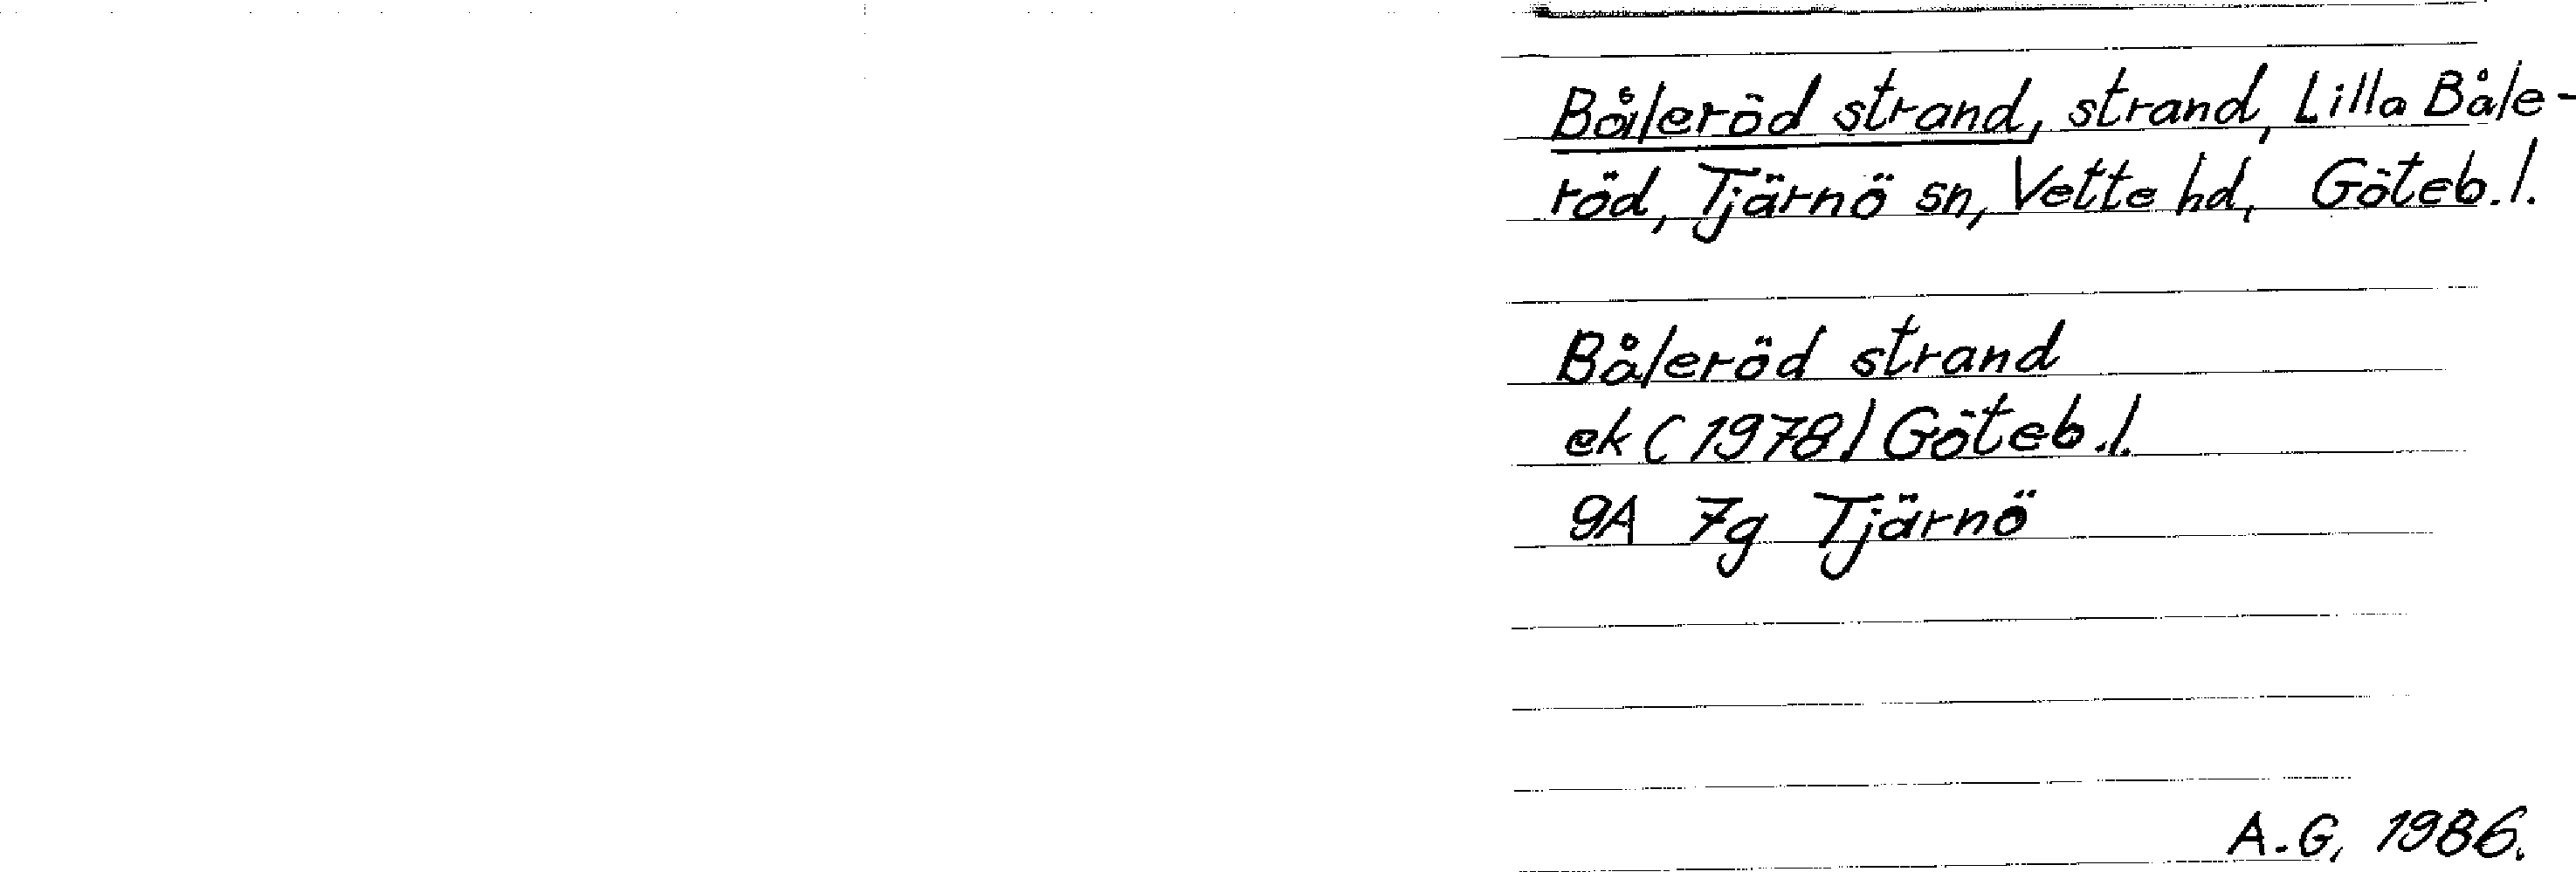 Båleröd strand, strand, Lilla Båle-
röd, Tjärnö sn, Vette hd, Göteb. l.
Båleröd strand
ek (1978) Göteb. l.
9A 7g Tjärnö
A.G, 1986.